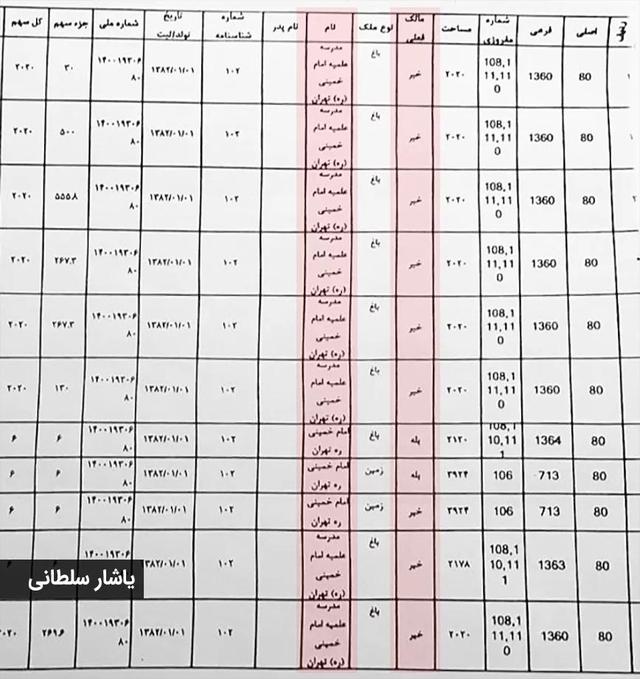 ردیف اصلی فرعی شماره مفروزی مساحت مالک فعلی نوع ملک نام نام پدر شماره شناسنامه تاریخ تولد/ثبت شماره ملی جزء سهم کل سهم
80 1360 108,111,110 ۲۰۲۰ خیر باغ مدرسه علمیه امام خمینی (ره) تهران ۱۰۲ ۱۳۸۲/۰۱/۰۱ ۱۴۰۰۱۹۳۰۶۸۰ ۳۰ ۲۰۲۰
80 1360 108,111,110 ۲۰۲۰ خیر باغ مدرسه علمیه امام خمینی (ره) تهران ۱۰۲ ۱۳۸۲/۰۱/۰۱ ۱۴۰۰۱۹۳۰۶۸۰ ۵۰۰ ۲۰۲۰
80 1360 108,111,110 ۲۰۲۰ خیر باغ مدرسه علمیه امام خمینی (ره) تهران ۱۰۲ ۱۳۸۲/۰۱/۰۱ ۱۴۰۰۱۹۳۰۶۸۰ ۵۵۵.۸ ۲۰۲۰
80 1360 108,111,110 ۲۰۲۰ خیر باغ مدرسه علمیه امام خمینی (ره) تهران ۱۰۲ ۱۳۸۲/۰۱/۰۱ ۱۴۰۰۱۹۳۰۶۸۰ ۲۶۷.۳ ۲۰۲۰
80 1360 108,111,110 ۲۰۲۰ خیر باغ مدرسه علمیه امام خمینی (ره) تهران ۱۰۲ ۱۳۸۲/۰۱/۰۱ ۱۴۰۰۱۹۳۰۶۸۰ ۲۶۷.۳ ۲۰۲۰
80 1360 108,111,110 ۲۰۲۰ خیر باغ مدرسه علمیه امام خمینی (ره) تهران ۱۰۲ ۱۳۸۲/۰۱/۰۱ ۱۴۰۰۱۹۳۰۶۸۰ ۱۳۰ ۲۰۲۰
80 1364 108,110,111 ۲۱۲۰ بله باغ امام خمینی ره تهران ۱۰۲ ۱۳۸۲/۰۱/۰۱ ۱۴۰۰۱۹۳۰۶۸۰ ۶ ۶
80 713 106 ۳۹۲۴ بله زمین امام خمینی ره تهران ۱۰۲ ۱۳۸۲/۰۱/۰۱ ۱۴۰۰۱۹۳۰۶۸۰ ۶ ۶
80 713 106 ۳۹۲۴ خیر زمین امام خمینی ره تهران ۱۰۲ ۱۳۸۲/۰۱/۰۱ ۱۴۰۰۱۹۳۰۶۸۰ ۶ ۶
80 1363 108,110,111 ۲۱۷۸ خیر باغ مدرسه علمیه امام خمینی (ره) تهران ۱۰۲ ۱۳۸۲/۰۱/۰۱
یاشار سلطانی
80 1360 108,111,110 ۲۰۲۰ خیر باغ مدرسه علمیه امام خمینی (ره) تهران ۱۰۲ ۱۳۸۲/۰۱/۰۱ ۱۴۰۰۱۹۳۰۶۸۰ ۲۶۹.۶ ۲۰۲۰